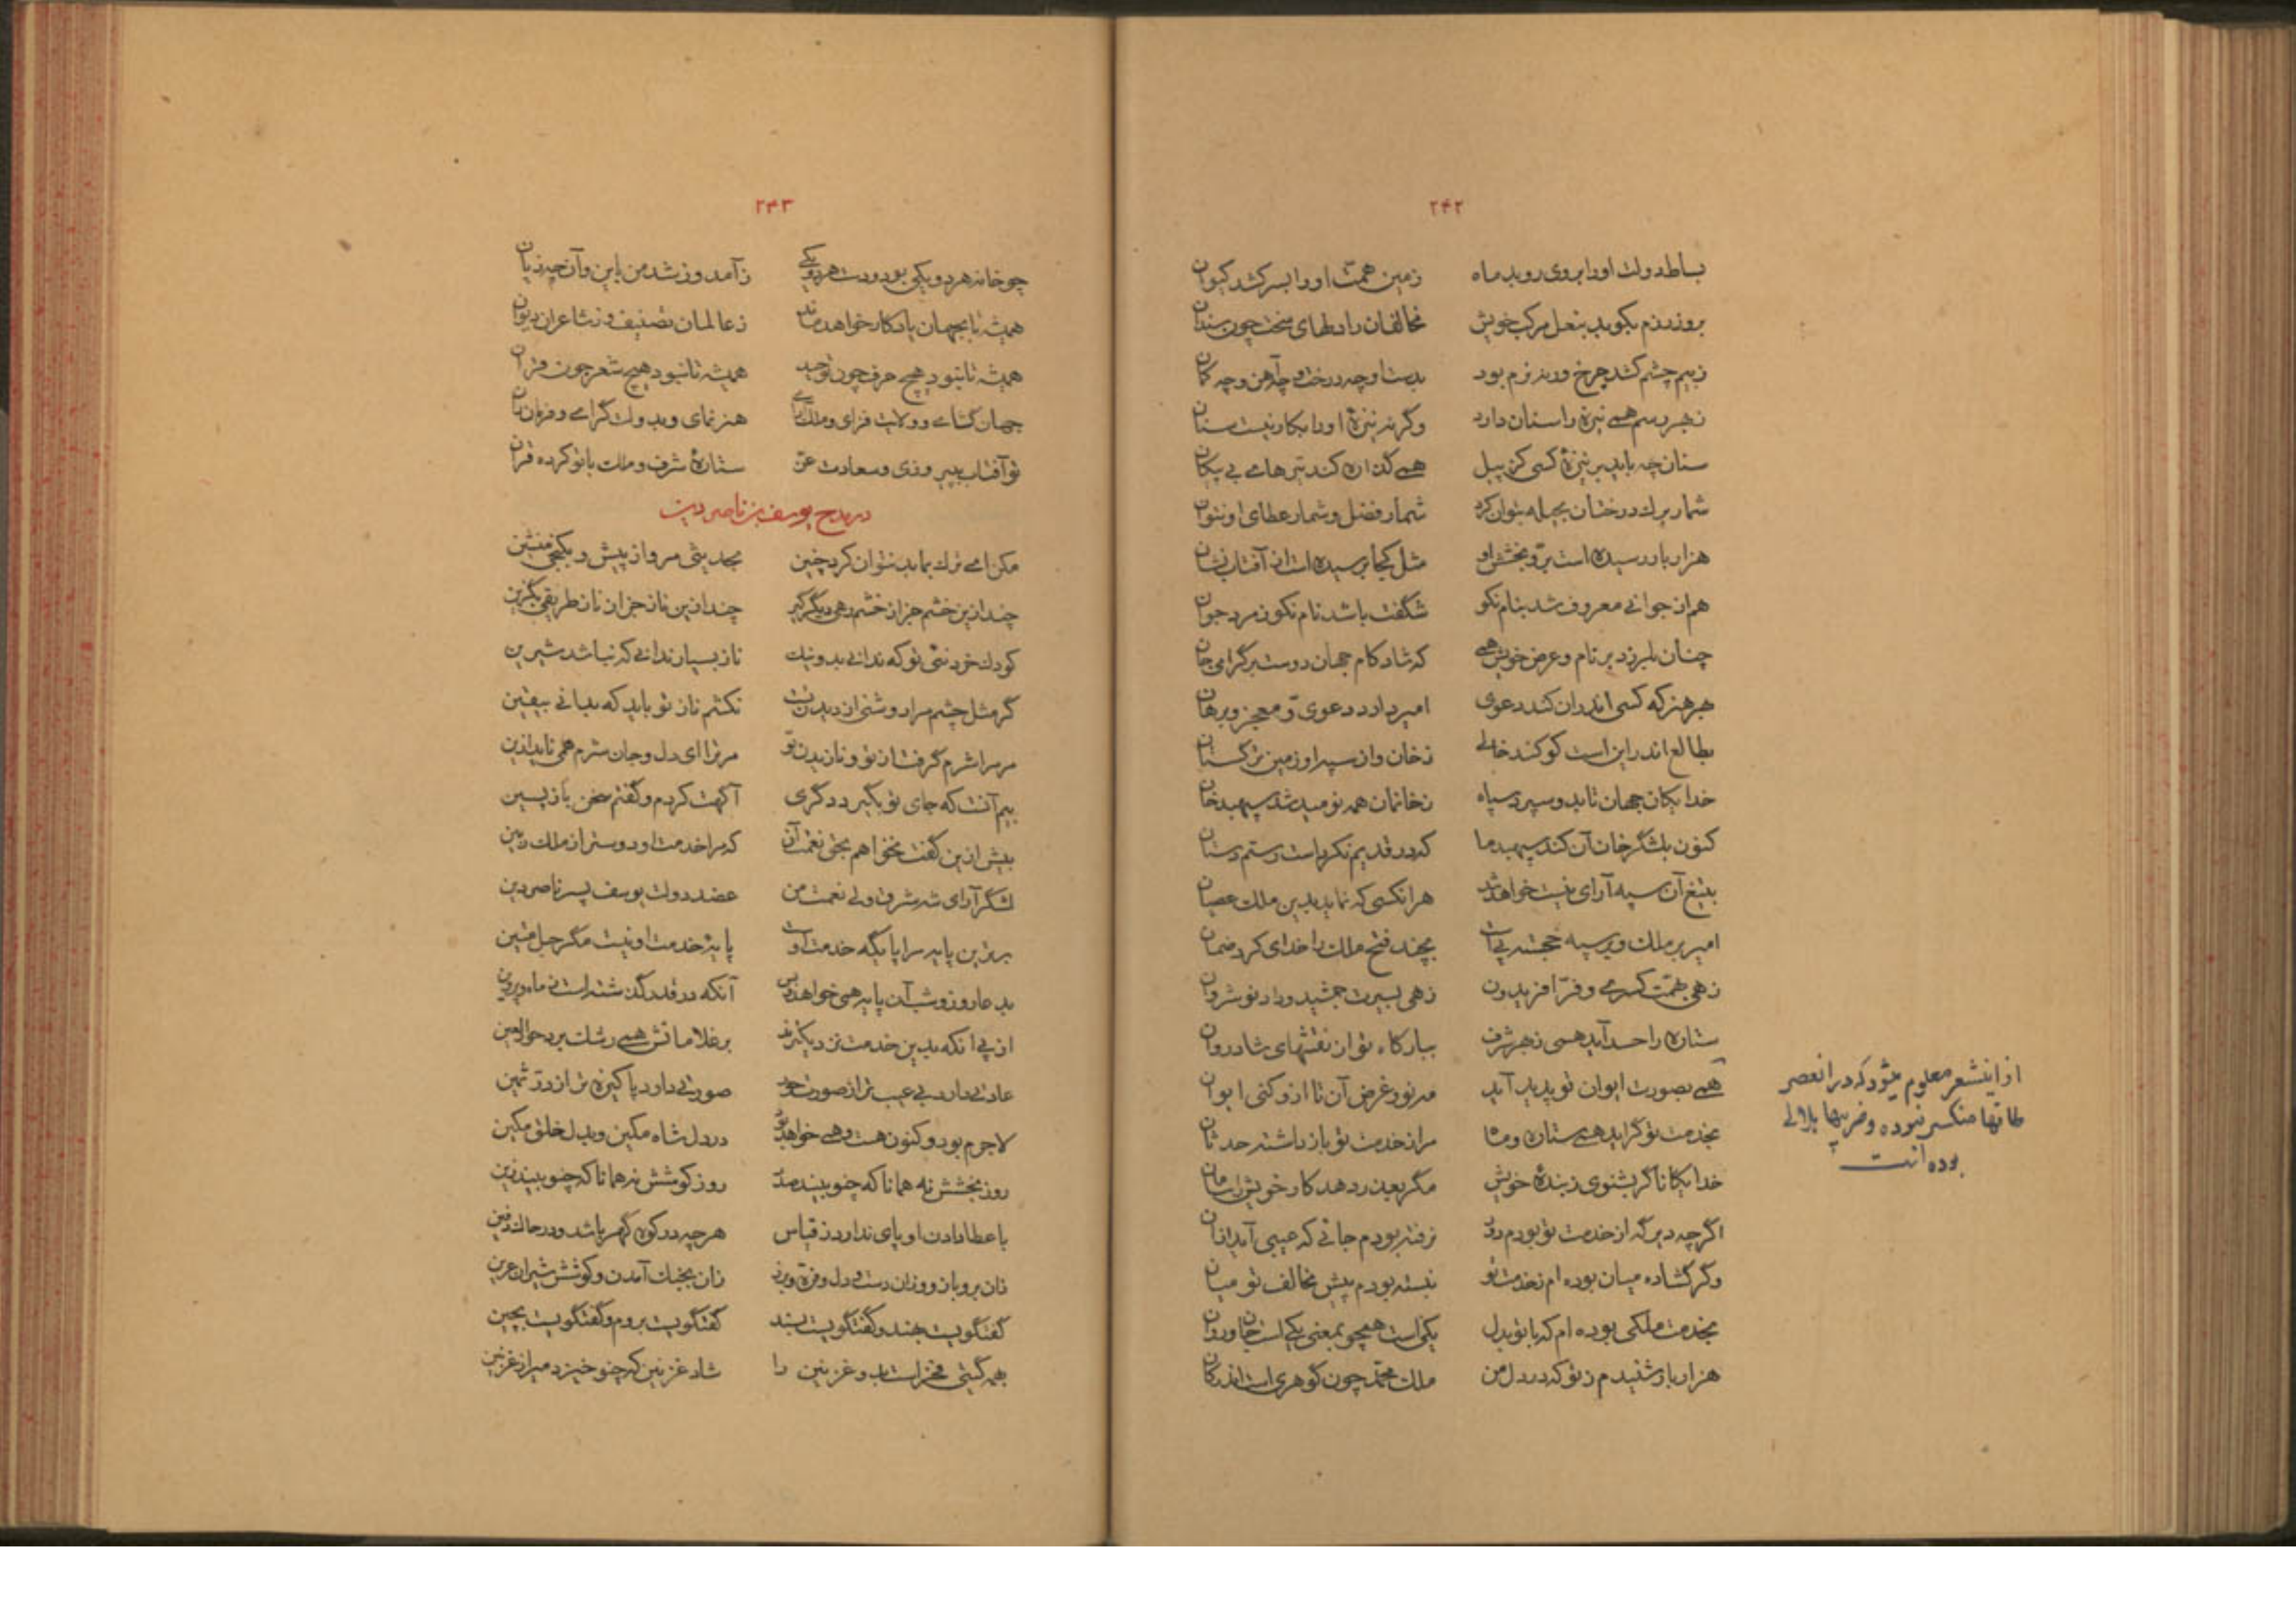 ۲۴۲
بساط دولت او را بروی روبد ماه زمین همت او را بسر کشد کیوان
بروز رزم بکوبد بنعل مرکب خویش مخالفان را دلهای سخت چون سندان
ز بیم چشم کشد چرخ ورنه رزم بود بدست او چه درخت و چه آهن و چه کمان
ز بهر رسم همی نیزه را سنان دارد وگرنه نیزهٔ او را بکار نیست سنان
سنان چه باید بر نیزهٔ کسی کز پیل همی گذاره کند تیرهای بی پیکان
شمار برک درختان بحیله بتوان کرد شمار فضل و شمار عطای او نتوان
هزار بار رسیده است بر و بخشش او مثل کجا برسیده است از آفتاب نشان
هم از جوانی معروف شد بنام نکو شگفت باشد نام نکو ز مرد جوان
چنان بلرزد بر نام و عرض خویش همی که شاد کام جهان دوست بر گرامی جان
بهر هنر که کسی اندران کند دعوی امیر دارد دعوی و معجز و برهان
بطالع اندر این است کو کند خالی ز خان و از سپه او زمین ترکستان
خدایکان جهان تا بدو سپرد سپاه ز خانمان همه نومید شد سپهبد خان
کنون بلشگر خان آن کند سپهبد ما که در قدیم نکرد است رستم دستان
بتیغ آن سپه آرای نیست خواهد شد هر انکسی که نماید بدین ملک عصیان
امیر بر ملک و بر سپه خجسته پی است بچند فتح ملک را خدای کرد ضمان
زهی بهمت کسری و فر افریدون زهی بسیرت جمشید و داد نوشروان
ستاره را حسد آید همی ز بهر شرف ببارکاه تو از نقشهای شادروان
همی بصورت ایوان تو پدید آید مه نو و غرض آن تا ازو کنی ایوان
بخدمت تو گراید همی ستاره و ما مرا ز خدمت تو باز داشته حدثان
خدایکانا گر بشنوی ز بندهٔ خویش مگر بعذر دهد کار خویش را سامان
اگرچه دیرگه از خدمت تو بودم دور نرفته بودم جائی که عیبی آید ازان
وگر گشاده میان بوده‌ام ز خدمت تو نبسته بودم پیش مخالف تو میان
بخدمت ملکی بوده‌ام که با تو بدل یکی است همچو بمعنی یکی است جان و روان
هزار بار شنیدم ز تو که در دل من ملک محمد چون گوهری است اندر کان
از اینشعر معلوم میشود که در انعصر
طاقها منکسر نبوده و ضربیها هلالی
بوده است
۲۴۳
چو خانه هر دو یکی بود و دست هر دو یکی ز آمد و ز شد من باین و آن چه زیان
همیشه تا بجهان یادکار خواهد ماند ز عالمان تصنیف و ز شاعران دیوان
همیشه تا نبود هیچ حرف چون توحید همیشه تا نبود هیچ شعر چون قران
جهان گشای و ولایت فزای و ملک آرای هنر نمای و بدولت گرای و فرمان ران
تو آفتاب بپیروزی و سعادت عز ستارهٔ شرف و ملک با تو کرده قران
در مدح یوسف بن ناصر دین
مکن ای ترک بماید نتوان کرد چنین بحدیثی مرو از پیش و بکنجی منشین
چند ازین خشم جز از خشم رهی دیگر گیر چند ازین ناز جز از ناز طریقی بگزین
کودک خرد نئی تو که ندانی بد و نیک ناز بسیار ندانی که نباشد شیرین
گر مثل چشم مرا روشنی از دیدن تست نکشم ناز تو باید که بدانی بیقین
مر مرا شرم گرفت از تو و ناز بدن تو مر ترا ای دل و جان شرم همی ناید ازین
بیم آنست که جای تو بگیرد دگری آگهت کردم و گفتم سخن باز پسین
بیش ازین گفت نخواهم بحق نعمت آن که مرا خدمت او دوستر از ملک زمین
لشگر آرای شه شرق ولی نعمت من عضد دولت یوسف پسر ناصر دین
برترین پایه مرا پایگه خدمت اوست پایهٔ خدمت او نیست مگر حبل متین
بدعا روز و شب آن پایه همی خواهد بس آنکه در قدر گذشته است ز ماه و پروین
از پی انکه بدین خدمت نزدیکترند بر غلامانش همی رشک برد حورالعین
عادتی دارد بی عیب تر از صورت حور صورتی دارد پاکیزه تر از در ثمین
لاجرم بود و کنون هست و همی خواهد بود در دل شاه مکین و بدل خلق مکین
روز بخشش نه همانا که چنو بیند صدر روز کوشش نه همانا که چنو بیند زین
با عطا دادن او پای ندارد ز قیاس هر چه در کوه گهر باشد و در خاک دفین
زان بر و بازو و زان دست و دل و فره و برز زان بجنک آمدن و کوشش شیران عرین
گفتگویست بهند و گفتگویست بسند گفتگویست بروم و گفتگویست بچین
همه گیتی فخر است بدو غزنین را شاد غزنین که چنو خیزد میر از غزنین